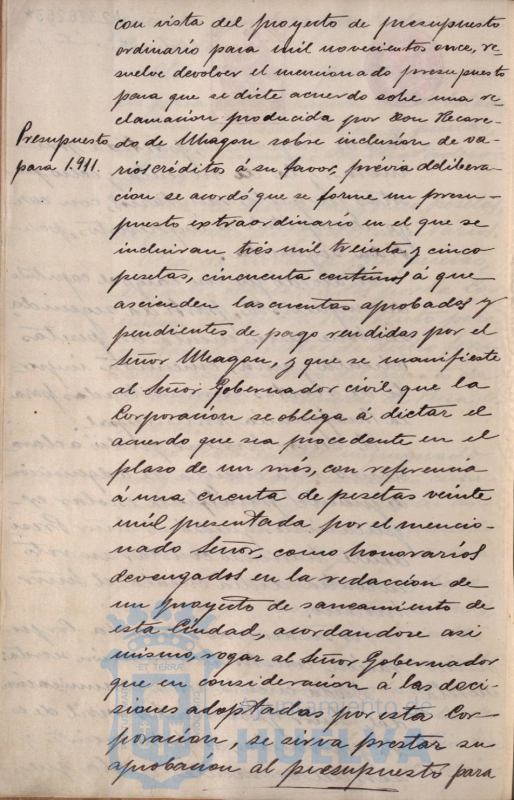 con vista del proyecto de presupuesto
ordinario para mil novecientos once, re-
suelve devolver el mencionado presupuesto
para que se dicte acuerdo sobre una re-
clamación producida por Don Recare-
Presupuesto
para 1.911.
do de Uhagon sobre inclusión de va-
rios créditos á su favor, prévia delibera-
cion se acordó que se forme un presu-
puesto extraordinario en el que se
incluiran tres mil treinta y cinco
pesetas, cincuenta centimos á que
ascienden las cuentas aprobadas y
pendientes de pago rendidas por el
Señor Uhagon, y que se manifieste
al Señor Gobernador civil que la
Corporación se obliga á dictar el
acuerdo que sea procedente en el
plazo de un més, con referencia
á una cuenta de pesetas veinte
mil presentada por el mencio-
nado Señor, como honorarios
devengados en la redacción de
un proyecto de saneamiento de
esta Ciudad, acordandose asi
mismo, rogar al Señor Gobernador
que en consideración á las deci-
siones adoptadas por esta Cor-
poración, se sirva prestar su
aprobación al presupuesto para
ET TERRA
Ayuntamiento de
HUELVA